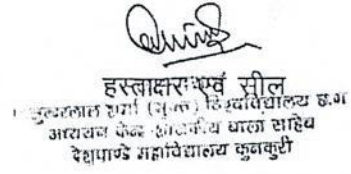 हस्ताक्षर एवं सील
सुन्दरलाल शर्मा (मुक्त) विश्वविद्यालय छ.ग
अध्ययन केन्द्र शासकीय बाला साहेब
देशपाण्डे महाविद्यालय कुनकुरी